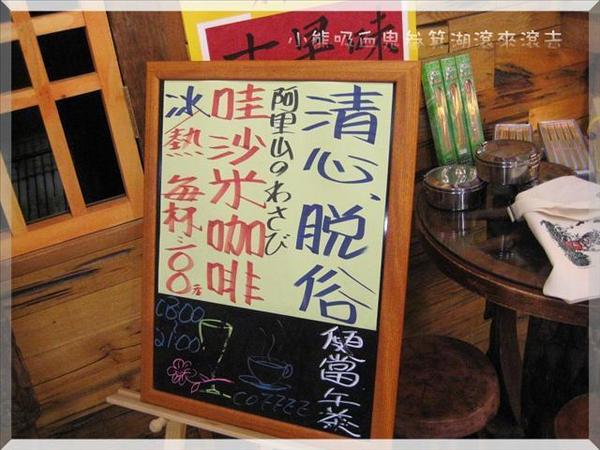 小熊吸血鬼與箕湖滾來滾去
清心、脫俗
阿里山のわさび
哇沙米咖啡
冰熱 每杯100元
便當午茶
0800
2100
coffee